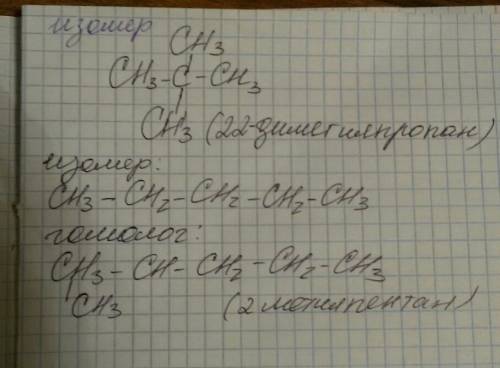 изомер
CH3
CH3-C-CH3
CH3 (22-диметилпропан)
изомер:
CH3-CH2-CH2-CH2-CH3
гомолог:
CH3-CH-CH2-CH2-CH3
CH3 (2 метилпентан)